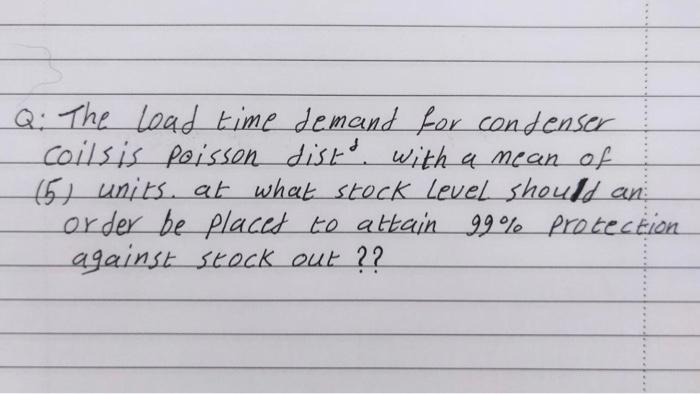 Q: The load time demand for condenser
coils is Poisson dist^d. with a mean of
(5) units. at what stock level should an
order be placed to attain 99% Protection
against stock out ??